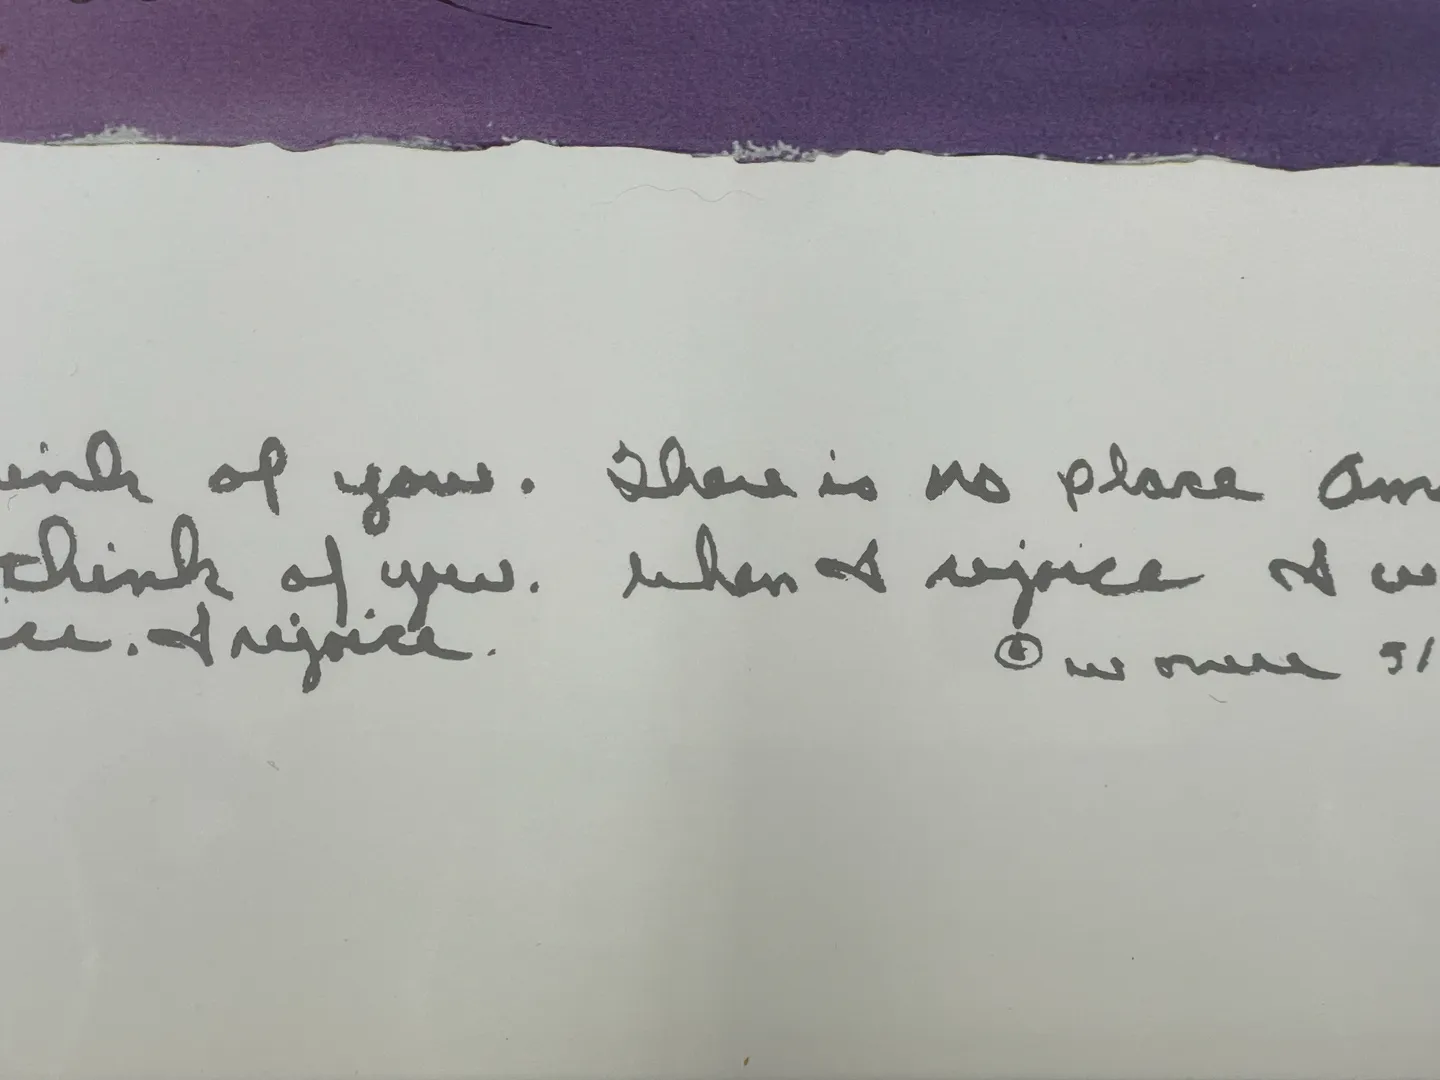 ink of you. There is no place am
think of you. when I rejoice I w
ice. I rejoice.
©